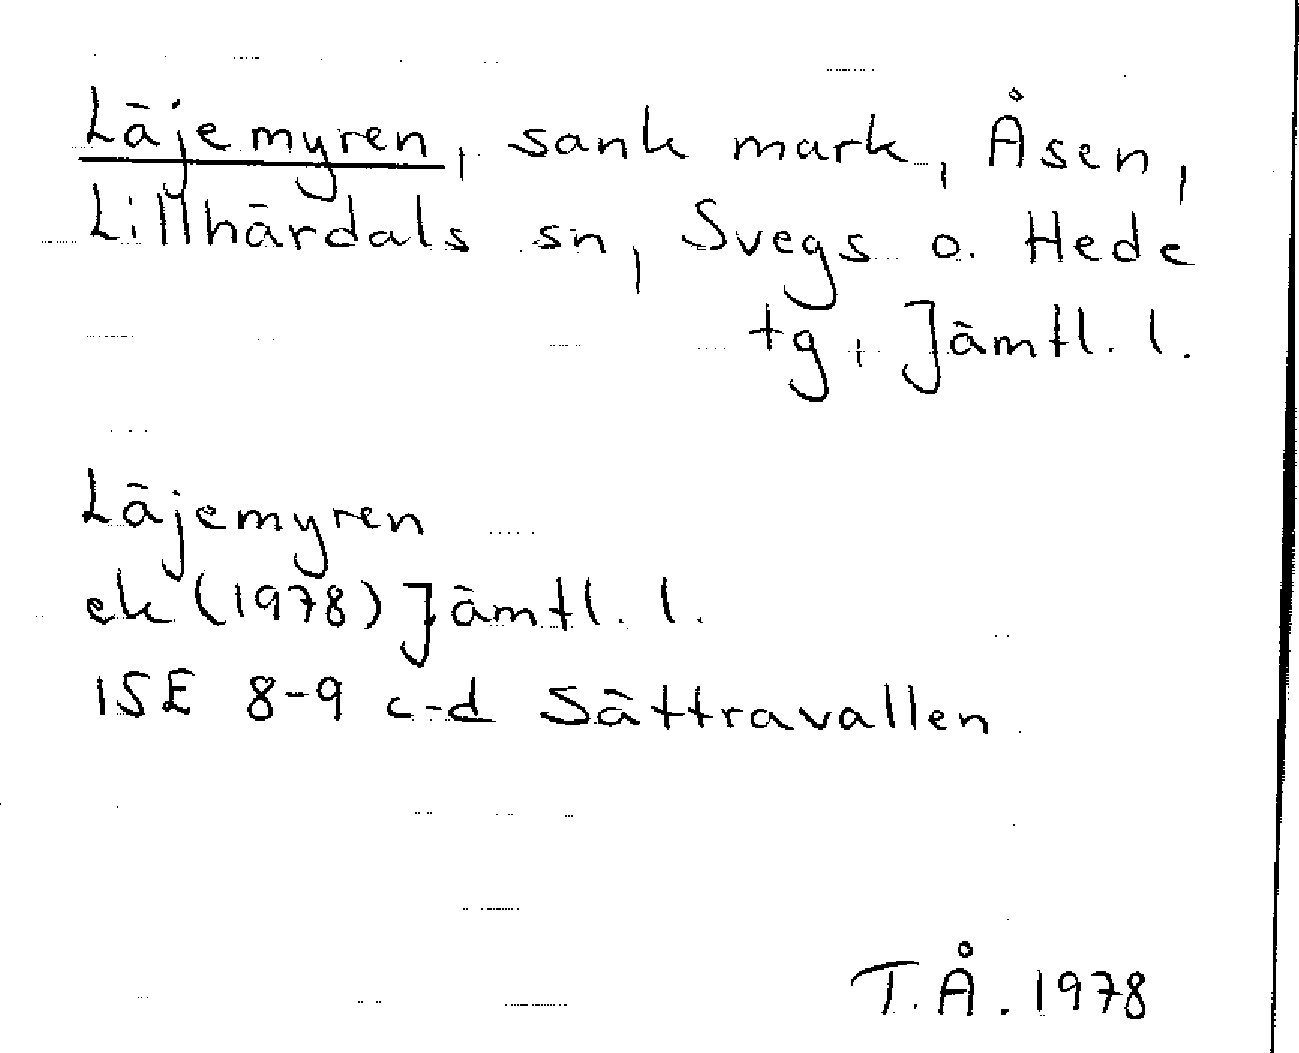 Läjemyren, sank mark, Åsen,
Lillhärdals sn, Svegs o. Hede
tg, Jämtl. l.
Läjemyren
ek (1978) Jämtl. l.
15E 8-9 c-d Sättravallen
T.Å. 1978